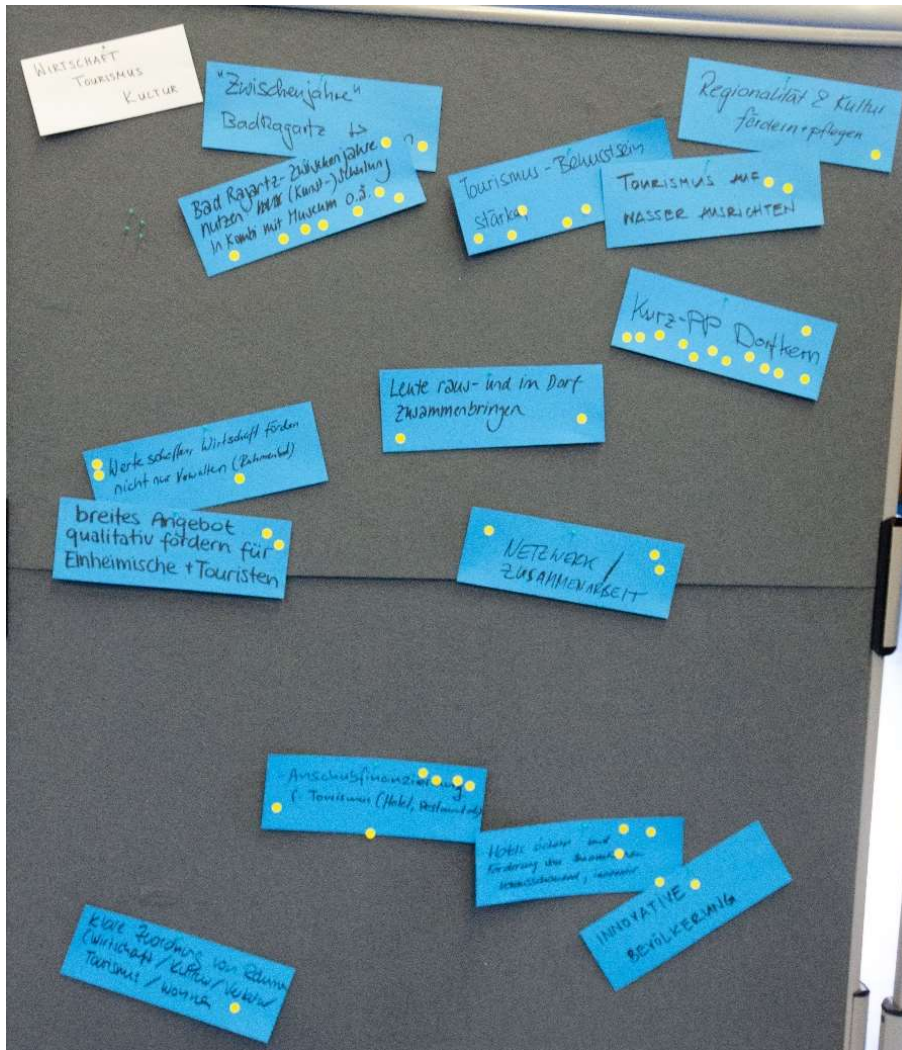 WIRTSCHAFT
TOURISMUS
KULTUR
"Zwischenjahre"
BadRagartz
Bad Ragartz-Zwischenjahre
nutzen (Kunst-)schulung
in Kombi mit Museum o.ä.
Tourismus-Bewusstsein
stärken
Regionalität & Kultur
fördern+pflegen
TOURISMUS AUF
WASSER AUSRICHTEN
Kurz-PP Dorfkern
Leute raus- und im Dorf
zusammenbringen
Werte schaffen, Wirtschaft fördern
nicht nur Verwalten
breites Angebot
qualitativ fördern für
Einheimische + Touristen
NETZWERK /
ZUSAMMENARBEIT
Anschubfinanzierung
f. Tourismus (Hotel,
Hotels sichern und
Förderung
INNOVATIVE
BEVÖLKERUNG
klare Zuordnung von Räumen
(Wirtschaft / Kultur / Verkehr /
Tourismus / wohnen